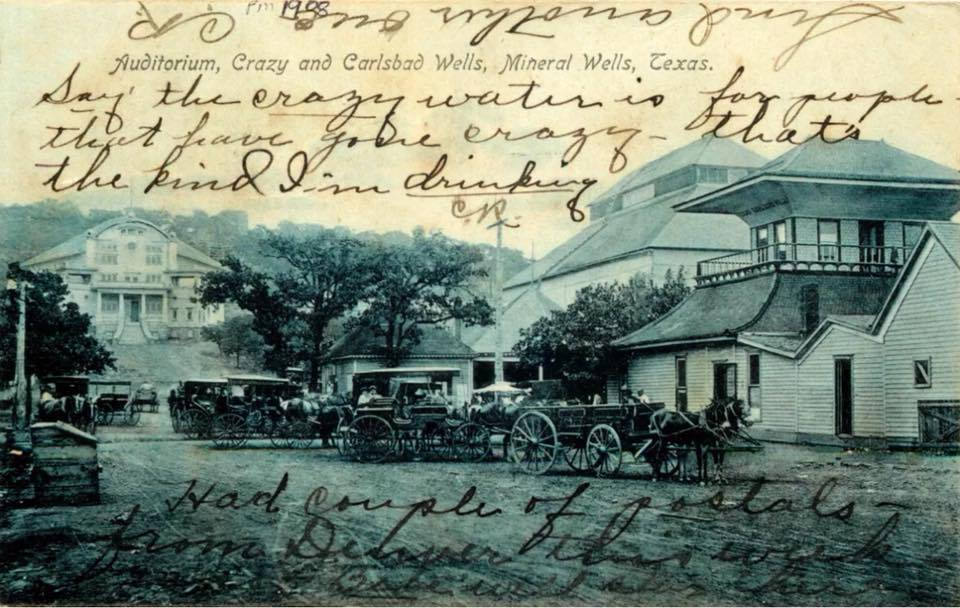 PM 1908
another
Auditorium, Crazy and Carlsbad Wells, Mineral Wells, Texas.
Say the crazy water is for people -
that have gone crazy - that's
the kind I'm drinking
CR.
Had couple of postals -
from Denver this week
will